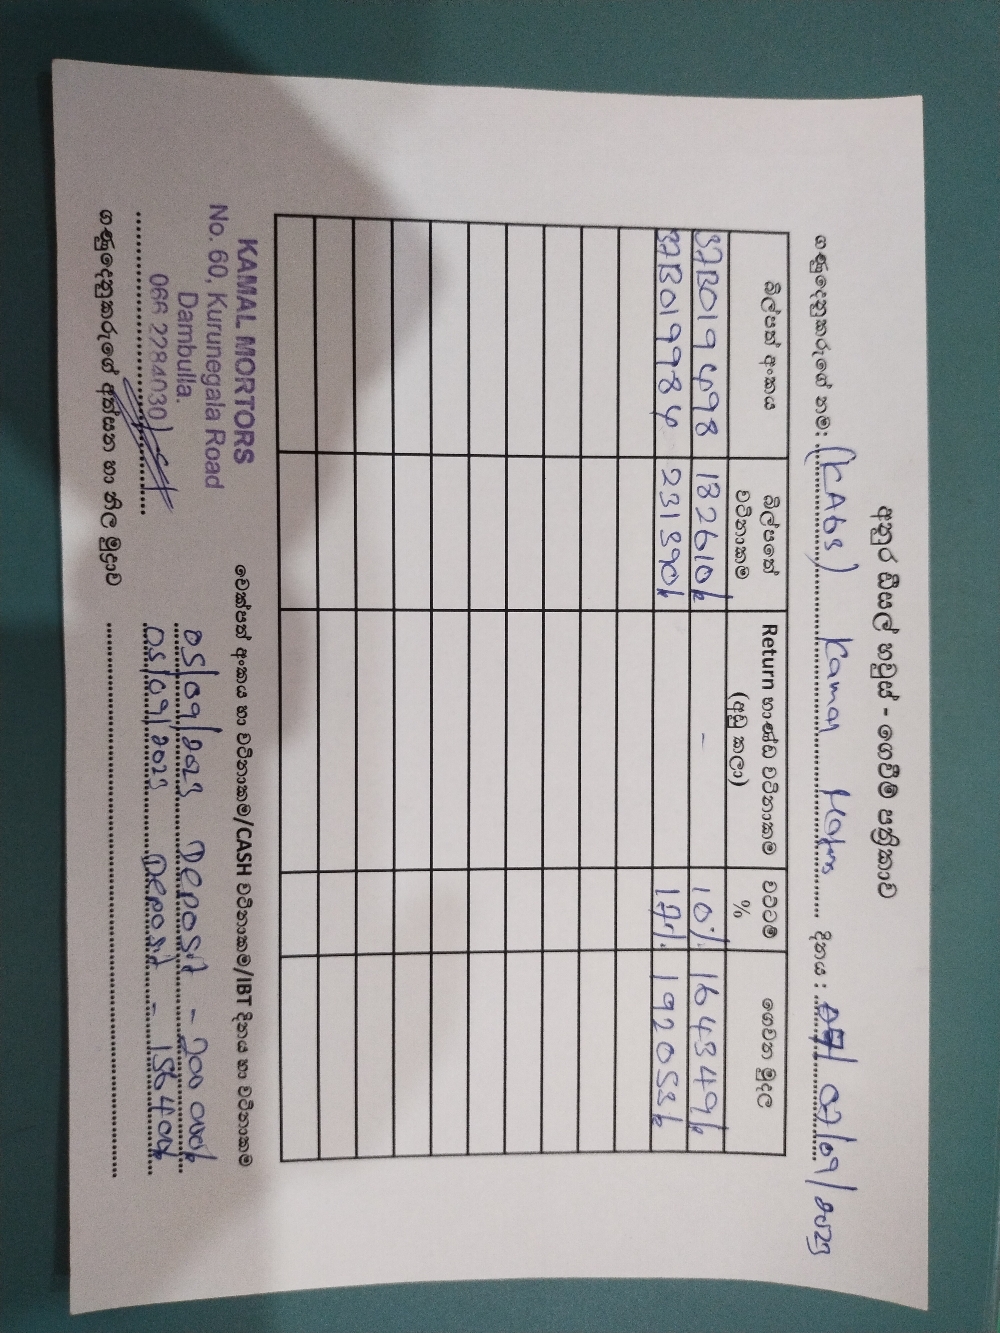 අනුර සියල් හවුස් - ගෙවීම් පත්‍රිකාව
ගණුදෙනුකරුගේ නම: (KA63) Kamal Motors දිනය: 07/09/2023
බිල්පත් අංකය බිල්පතේ වටිනාකම Return භාණ්ඩ වටිනාකම (අඩු කලා) වට්ටම % ගෙවන මුදල
37B019498 182610/= - 10% 164349/=
37B019984 231390/= 17% 192053/=
චෙක්පත් අංකය හා වටිනාකම/CASH වටිනාකම/IBT දිනය හා වටිනාකම
KAMAL MORTORS
No. 60, Kurunegala Road
Dambulla.
066 2284030
05/09/2023 Deposit - 200 000/=
05/09/2023 Deposit - 156400/=
ගණුදෙනුකරුගේ අත්සන හා නිල මුද්‍රාව